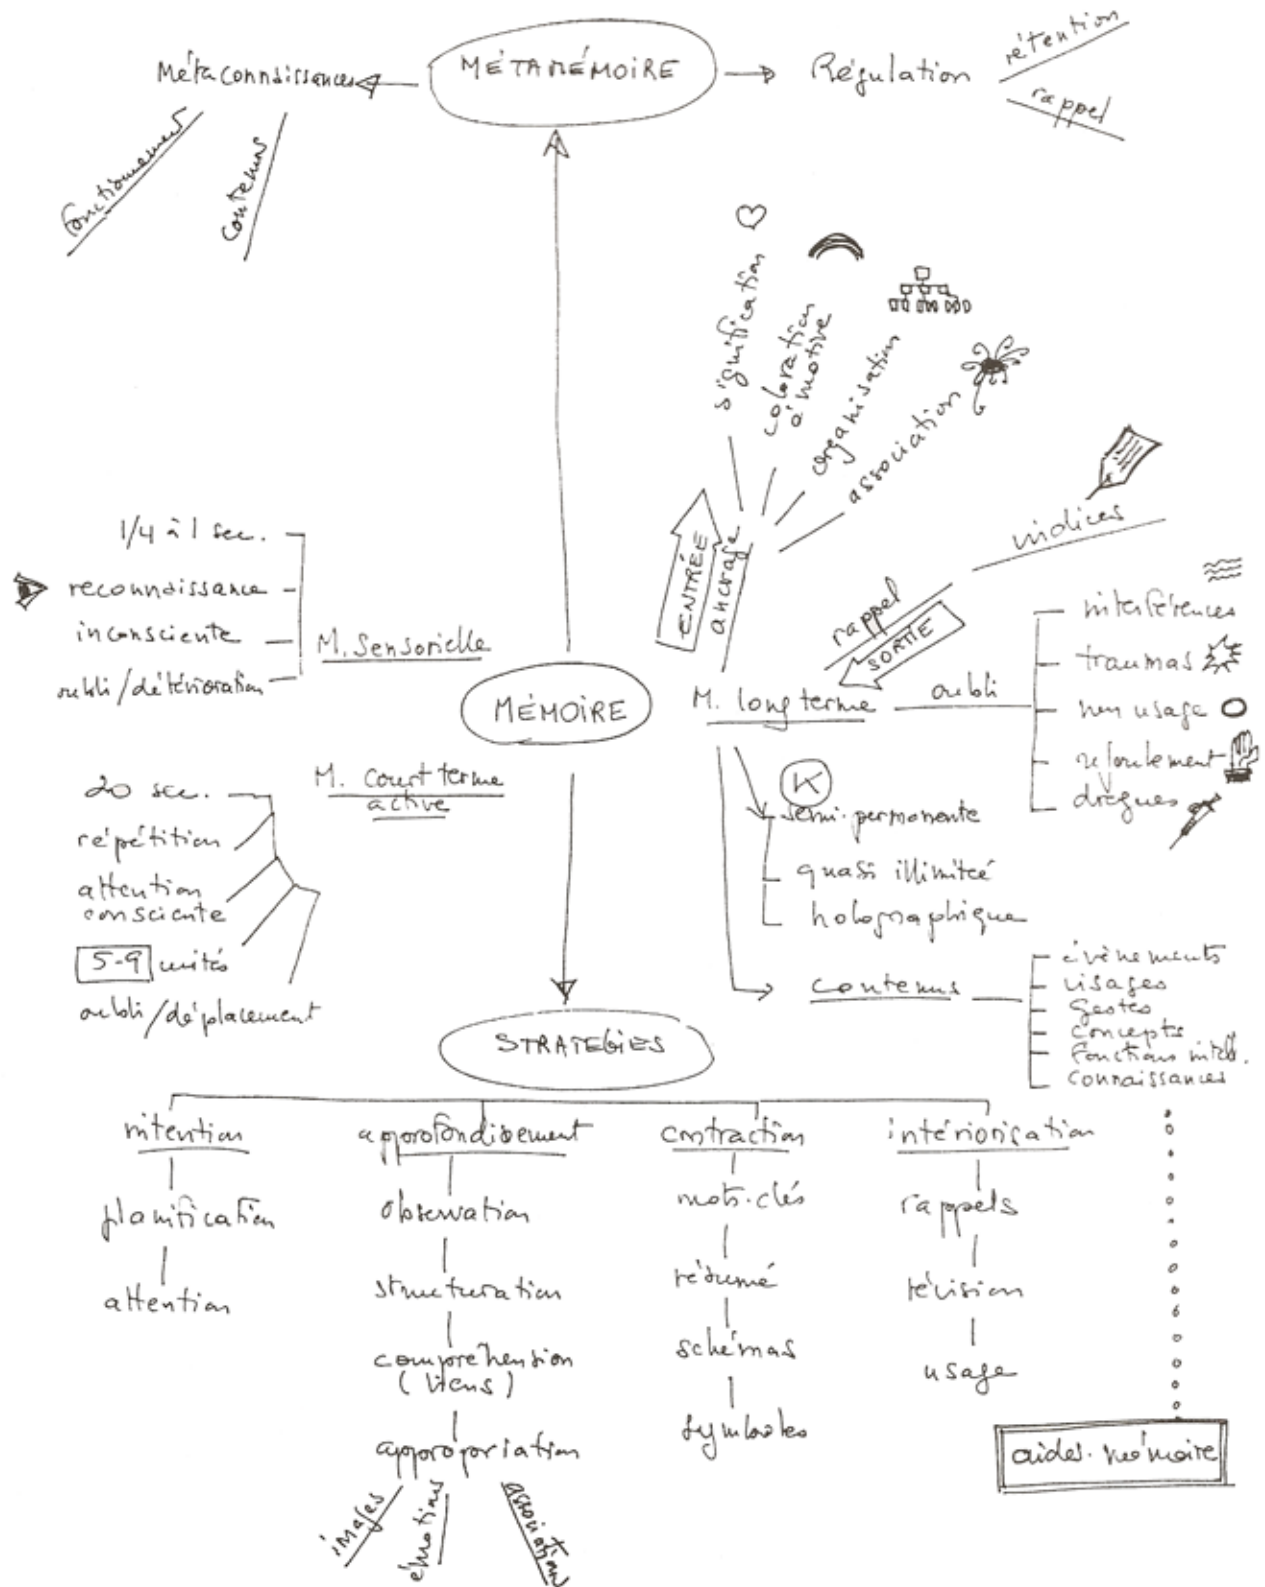 MÉTAMÉMOIRE
Métaconnaissances
fonctionnement
contenus
Régulation
rétention
rappel
signification
coloration
émotive
organisation
association
ENTRÉE
ancrage
indices
rappel
SORTIE
1/4 à 1 sec.
reconnaissance
inconsciente
oubli/détérioration
M. Sensorielle
MÉMOIRE
M. long terme
oubli
interférences
traumas
non usage
refoulement
drogues
M. Court terme
active
20 sec.
répétition
attention
consciente
5-9 unités
oubli/déplacement
K
semi-permanente
quasi illimitée
holographique
contenus
évènements
visages
gestes
concepts
fonctions intell.
connaissances
STRATÉGIES
intention
planification
attention
approfondissement
observation
structuration
compréhension
(liens)
appropriation
images
émotions
association
contraction
mots-clés
résumé
schémas
symboles
intériorisation
rappels
révision
usage
aides-mémoire